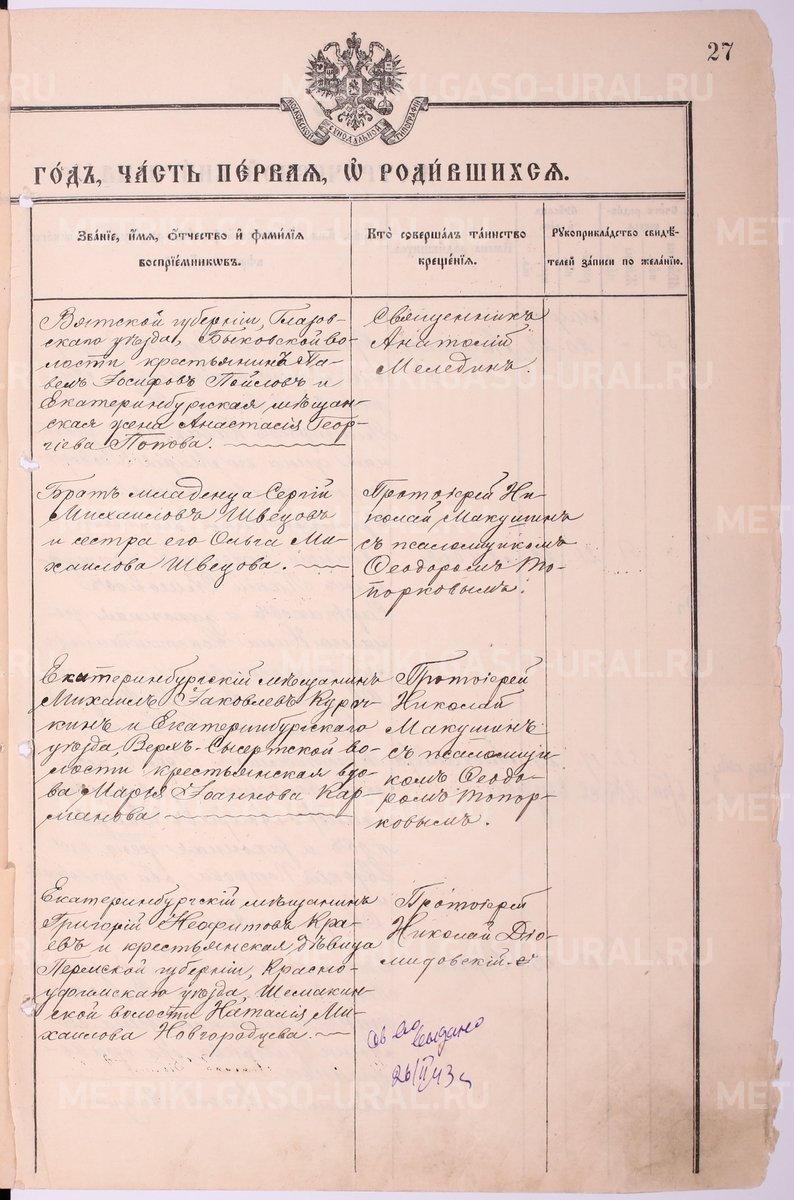 27
МОСКОВСКОЙ СѴНОДАЛЬНОЙ ТИПОГРАФІИ
ГО́ДЪ, ЧА́СТЬ ПЕ́РВАЯ, Ѡ҆ РОДИ́ВШИХСЯ.
Зва́нїе, и҆́мя, ѻ҆́тчество и҆ фами́лїя
воспрїе́мниковъ.
Кто̀ соверша́лъ та́инство
креще́нїя.
Рꙋкоприкла́дство свидѣ́-
телей за́писи по жела́нїю.
Вятской губерніи, Глазов-
скаго уѣзда, Быковской во-
лости крестьянинъ Па-
велъ Іосифовъ Пойловъ и
Екатеринбургская мѣщан-
ская жена Анастасія Геор-
гіева Попова.
Священникъ
Анатолій
Мелединъ.
Братъ младенца Сергій
Михаиловъ Швецовъ
и сестра его Ольга Ми-
хаилова Швецова.
Протоіерей Ни-
колай Макушинъ
съ псаломщикомъ
Ѳеодоромъ То-
порковымъ.
Екатеринбургскій мѣщанинъ
Михаилъ Іаковлевъ Куроч-
кинъ и Екатеринбургскаго
уѣзда Верхъ-Сысертской во-
лости крестьянская вдо-
ва Марья Іоаннова Кар-
манова
Протоіерей
Николай
Макушинъ
съ псаломщи-
комъ Ѳеодо-
ромъ Топор-
ковымъ.
Екатеринбургскій мѣщанинъ
Григорій Неофитовъ Кра-
евъ и крестьянская дѣвица
Пермской губерніи, Красно-
уфимскаго уѣзда, Шемакин-
ской волости Наталія Ми-
хаилова Новгородцева.
Протоіерей
Николай Діо-
мидовскій.
св во
выдано
26/II 43 г
METRIKI.GASO-URAL.RU
METRIKI.GASO-URAL.RU
METRIKI.GASO-URAL.RU
METRIKI.GASO-URAL.RU